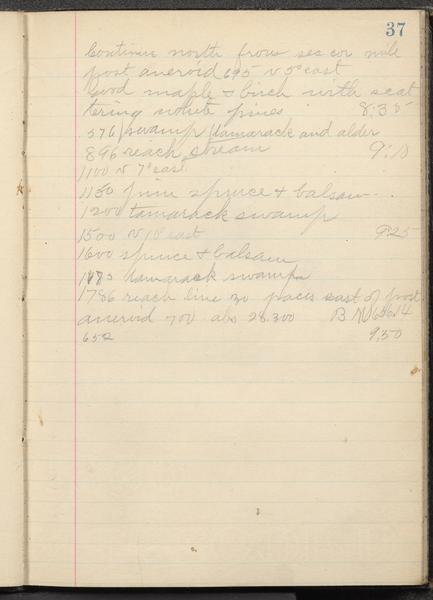 37
Continue north from sec cor mile
post aneroid 695 N 5° east
Good maple & birch with scat
tering white pines 8:35
576 swamp tamarack and alder
896 reach stream 9:10
1100 N 7° east
1150 pine spruce & balsam
1200 tamarack swamp
1500 N 10° east 9:25
1600 spruce & balsam
tamarack swamp
1786 reach line 30 paces east of post
aneroid 700 abs 28.300 B M
652 9,50